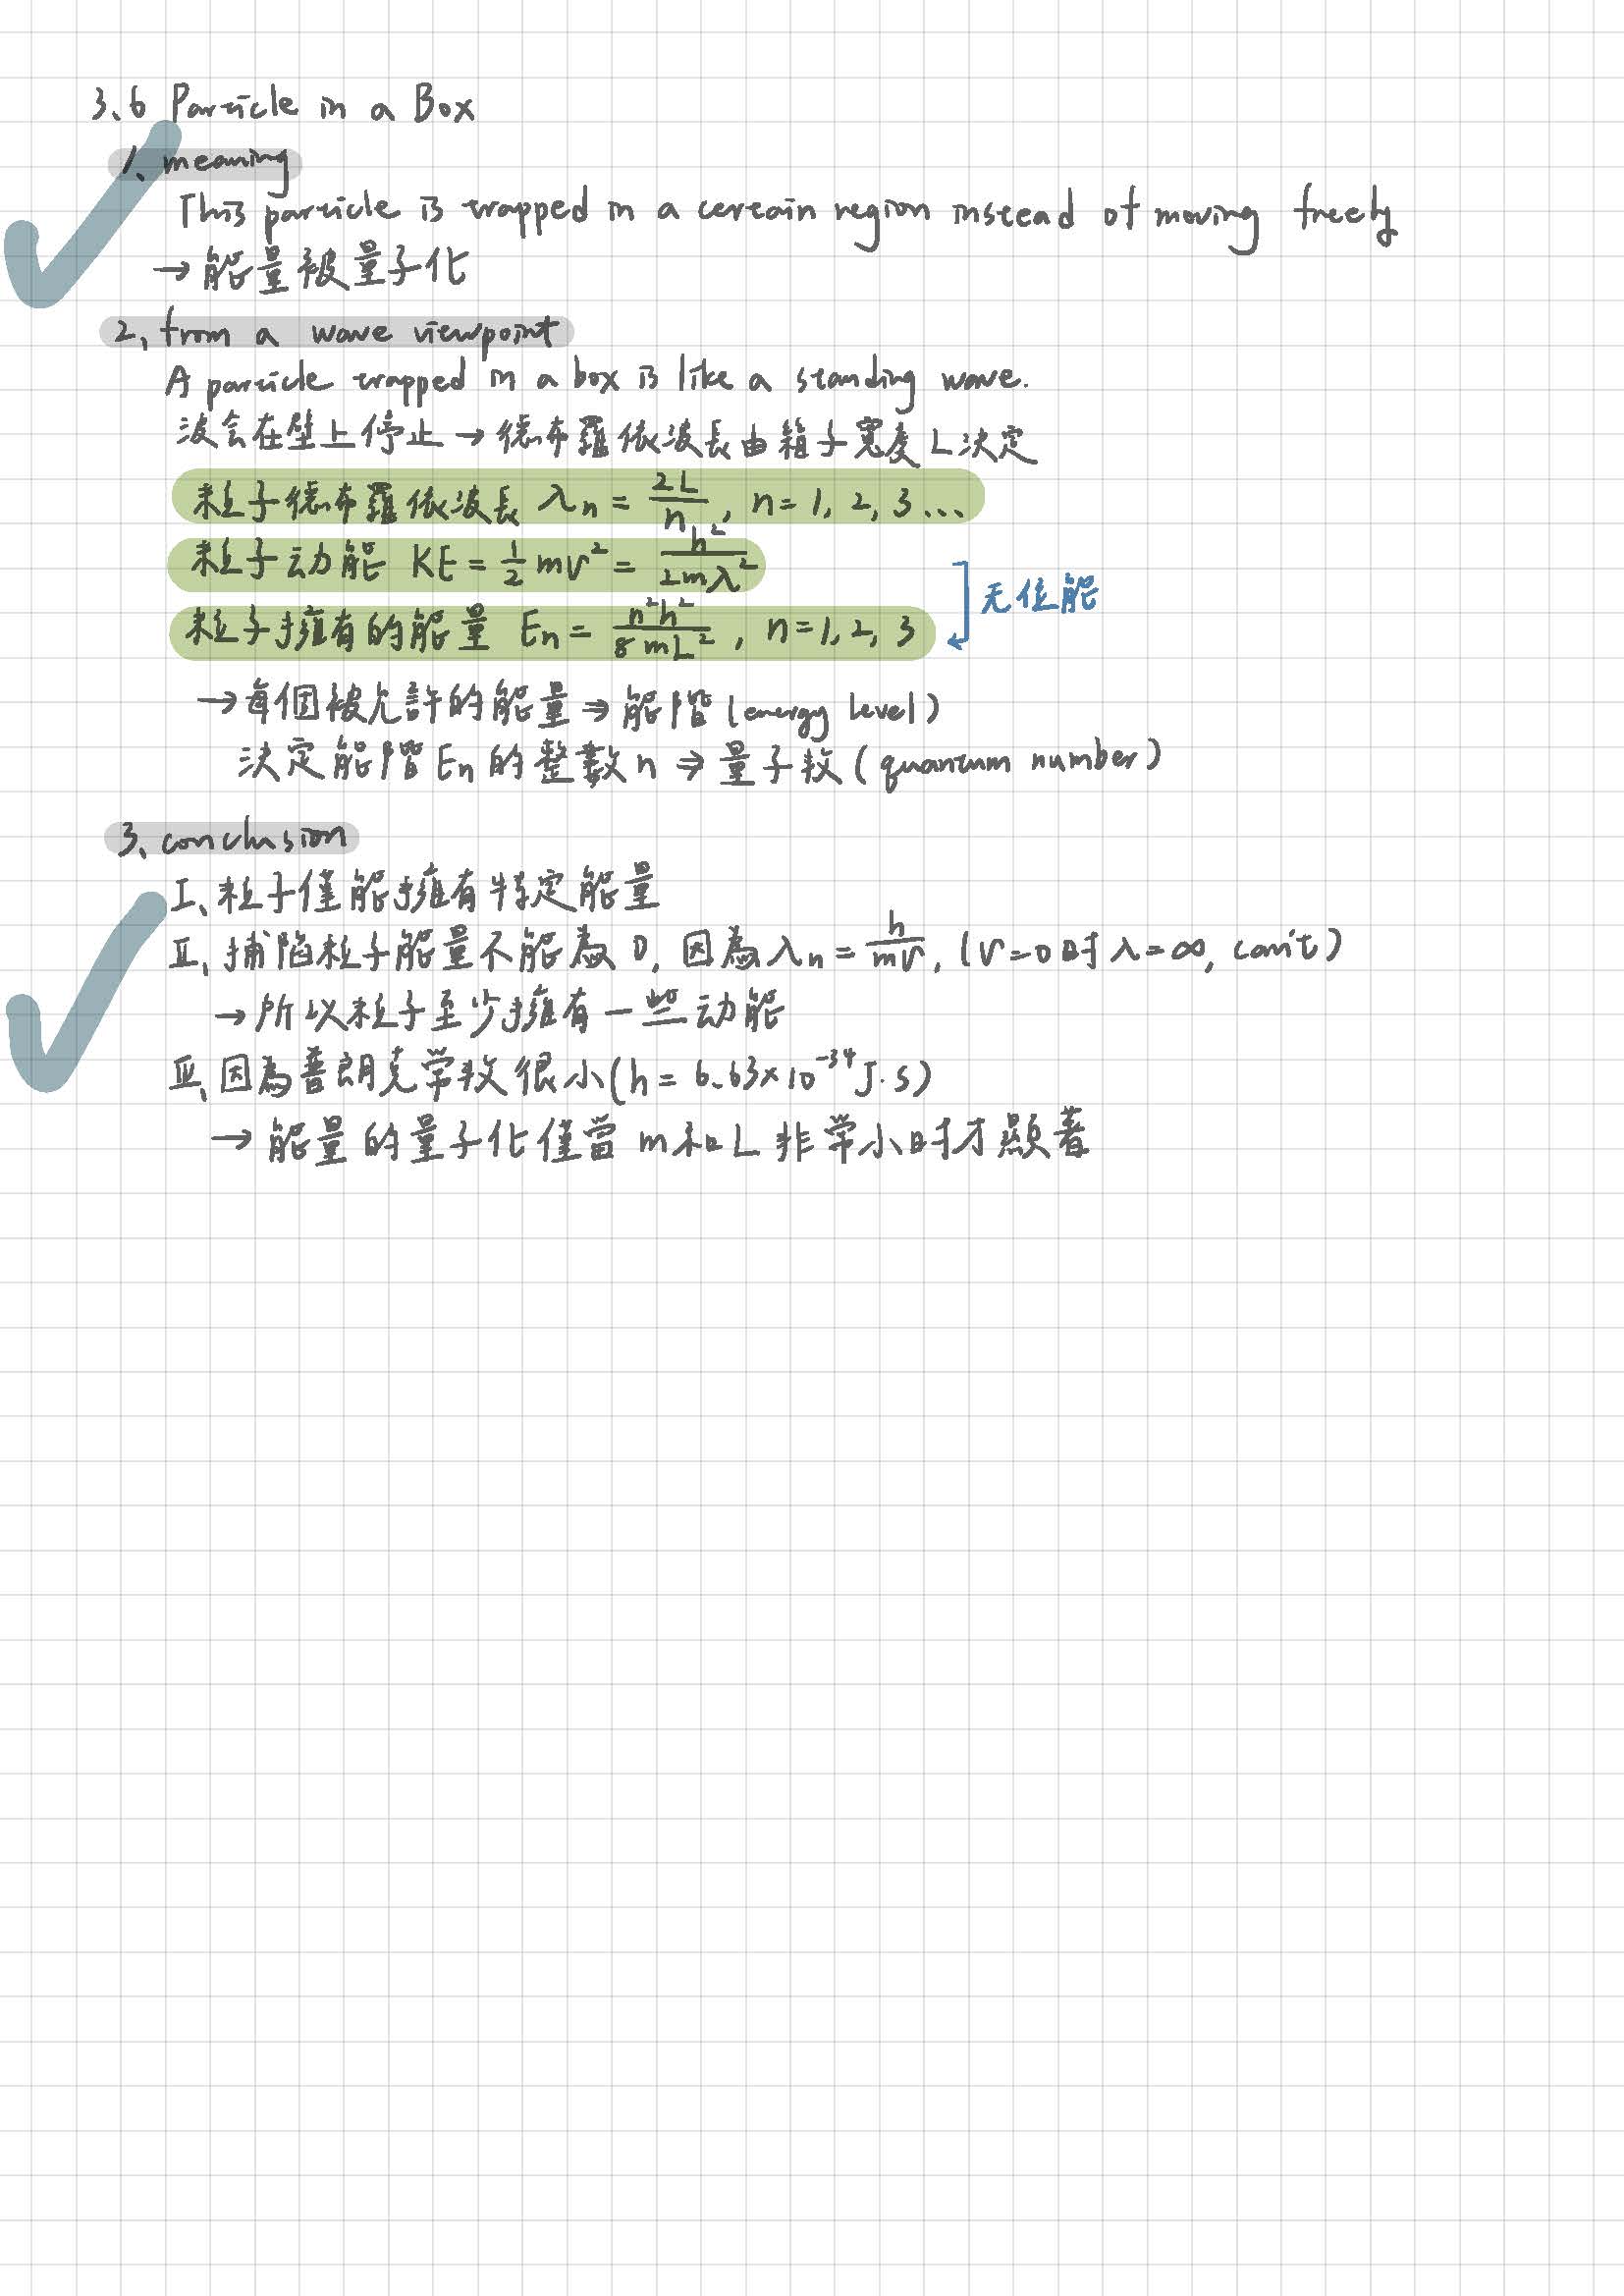 3.6 Particle in a Box
1. meaning
This particle is trapped in a certain region instead of moving freely
→能量被量子化
2. from a wave viewpoint
A particle trapped in a box is like a standing wave.
波会在壁上停止→德布羅依波長由箱子寬度L決定
粒子德布羅依波長 λn = 2L/n, n=1, 2, 3...
粒子动能 KE = 1/2 mv² = h²/2mλ²
粒子擁有的能量 En = n²h²/8mL², n=1, 2, 3
无位能
→每個被允許的能量⇒能階(energy level)
決定能階En的整數n⇒量子数(quantum number)
3. conclusion
I、粒子僅能擁有特定能量
II、捕陷粒子能量不能為0, 因為λn = h/mv, (v=0时λ=∞, can't)
→所以粒子至少擁有一些动能
III、因為普朗克常数很小(h = 6.63×10⁻³⁴J·s)
→能量的量子化僅當m和L非常小时才顯著